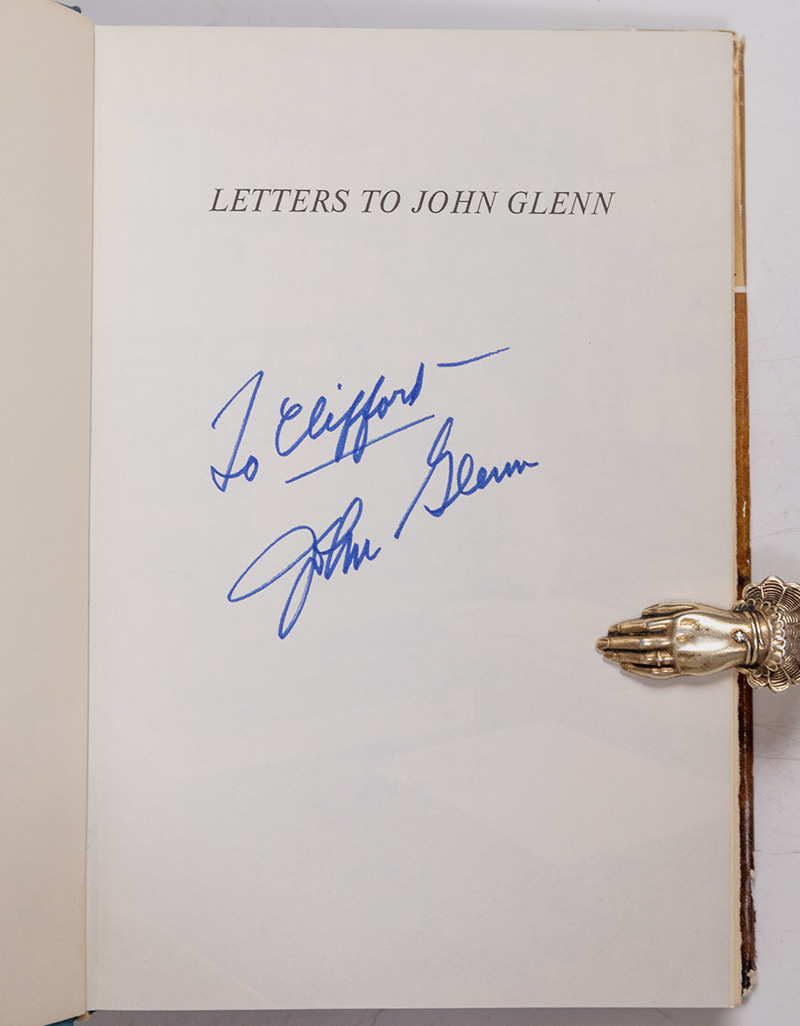 LETTERS TO JOHN GLENN
To Clifford —
John Glenn